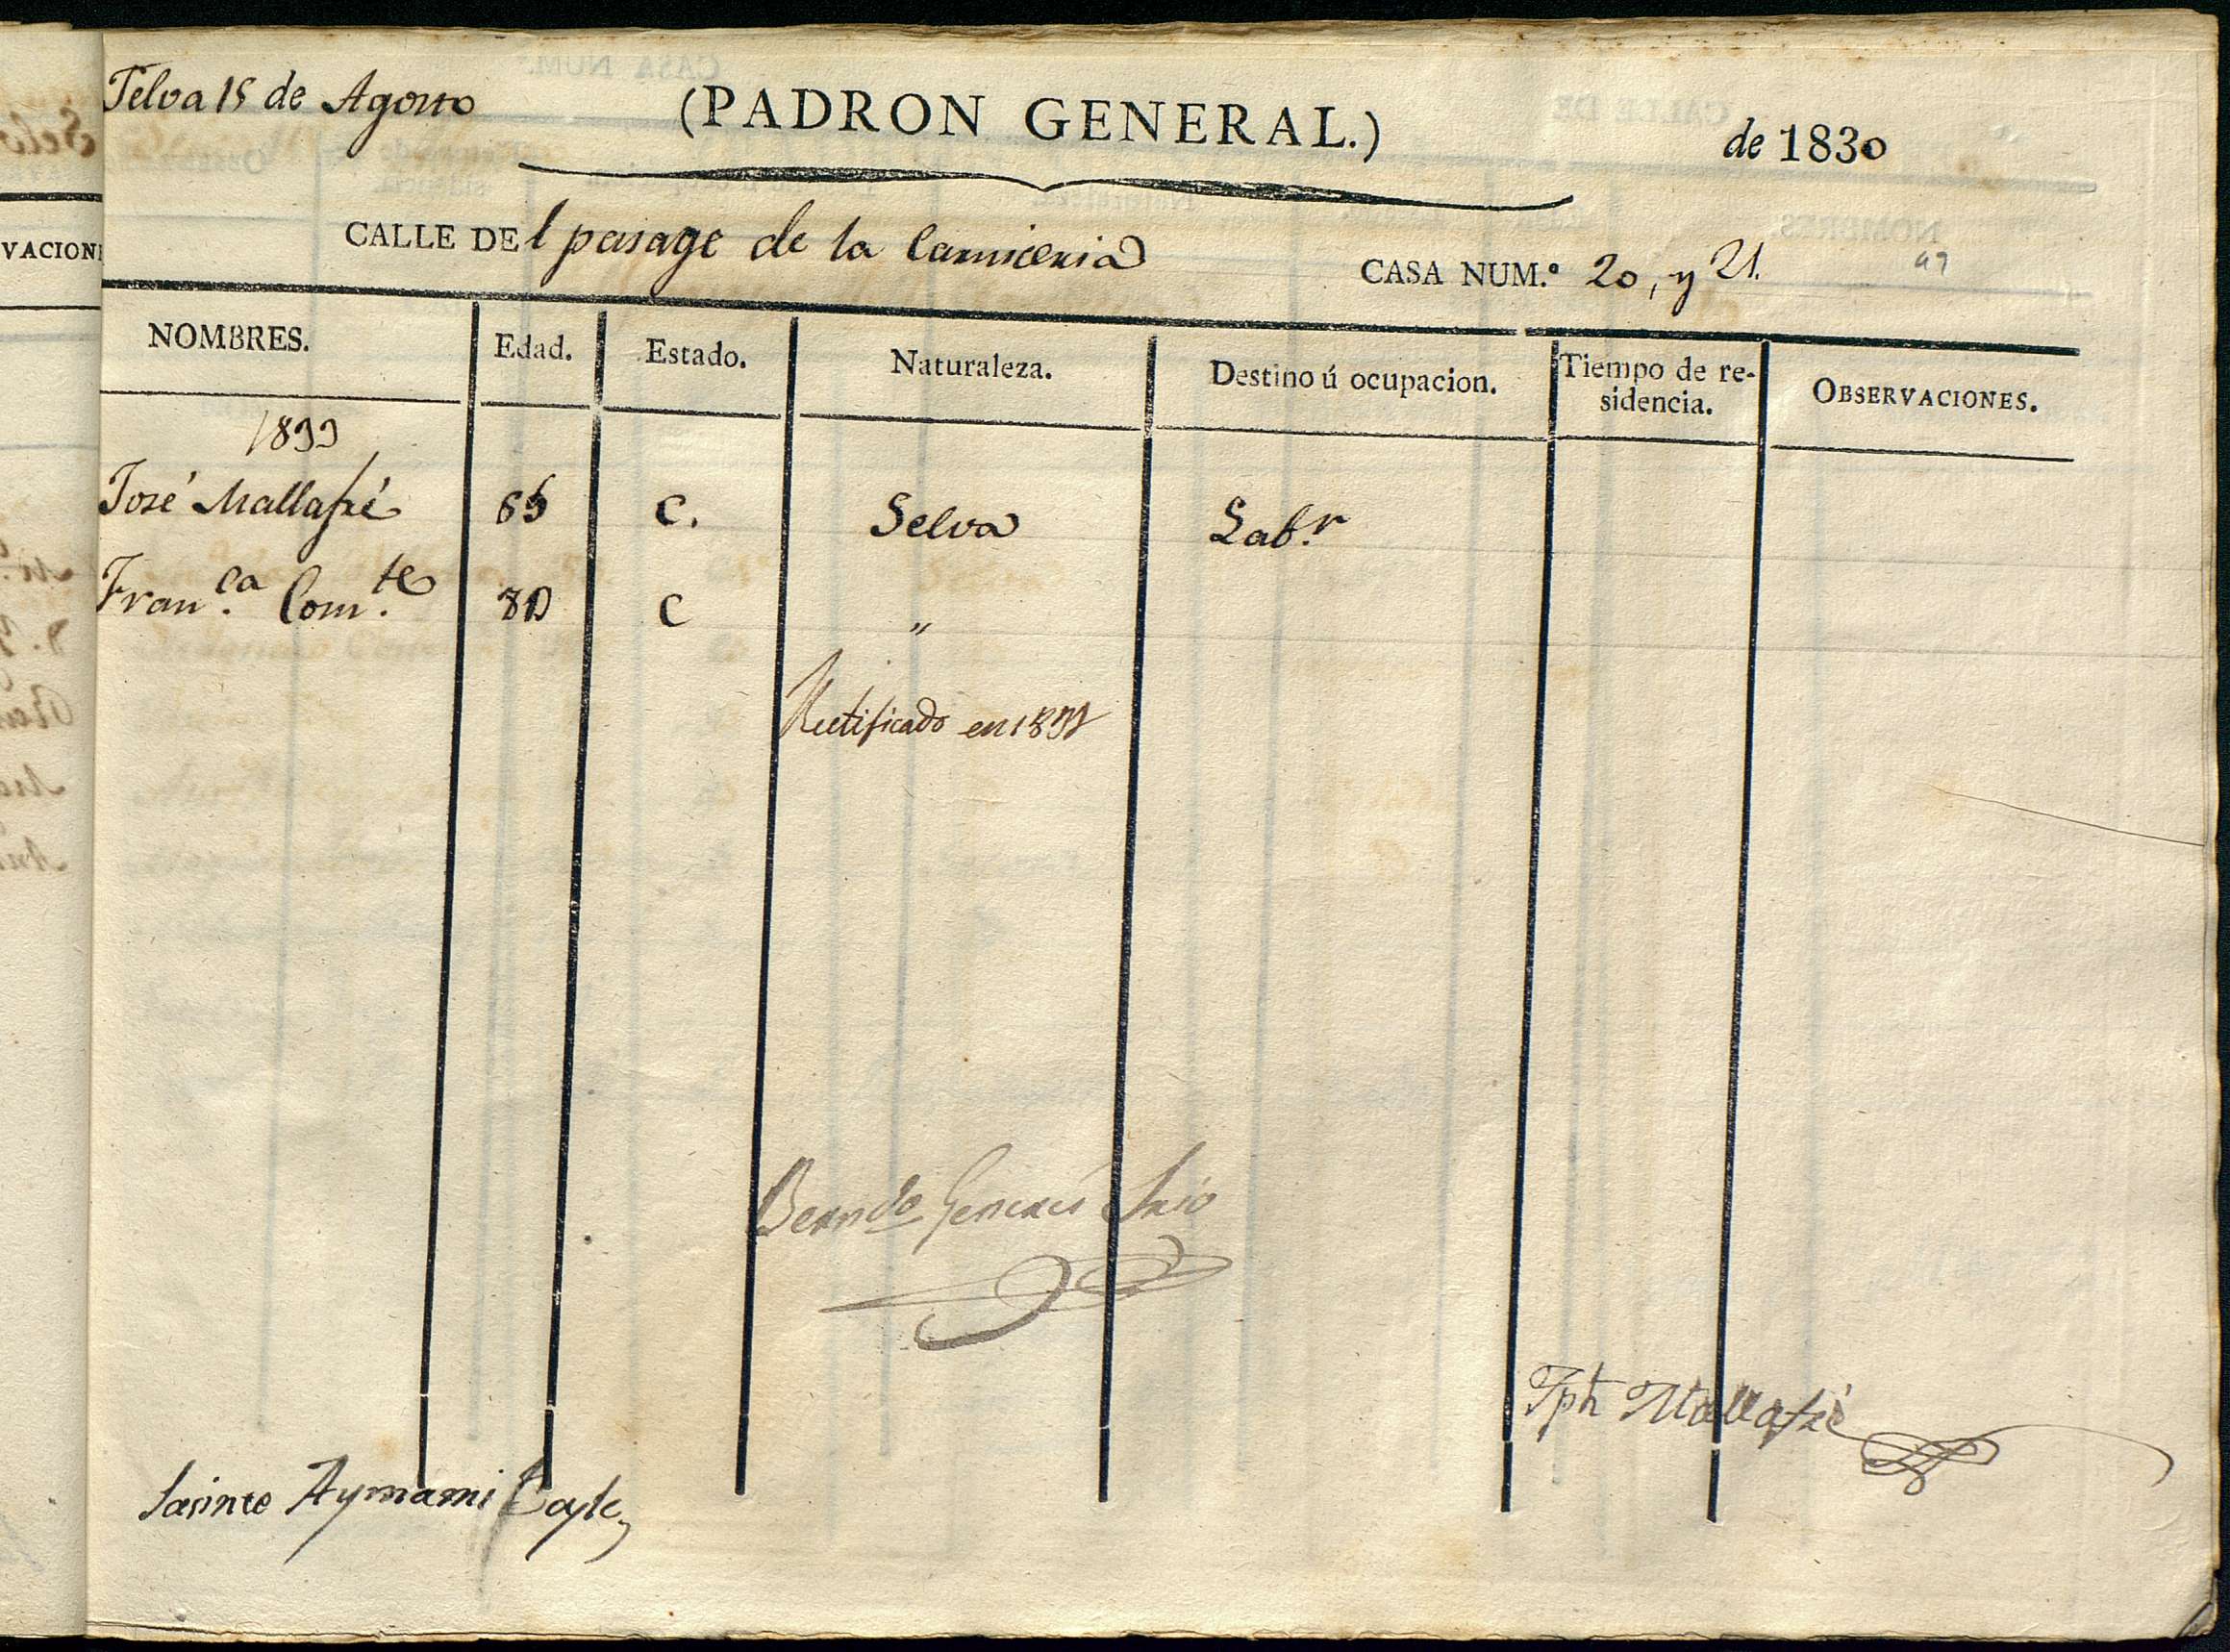 Selva 15 de Agosto (PADRON GENERAL.) de 1830
CALLE DEl pasage de la Carniceria CASA NUM.º 20, y 21.
NOMBRES. Edad. Estado. Naturaleza. Destino ú ocupacion. Tiempo de re-
sidencia. OBSERVACIONES.
José Mallafré C. Selva Lab.r
Fran.ca Com.te C "
Rectificado en
Bern.do Generés Srio
Jph Mallafré
Jasinto Aymami Bayle